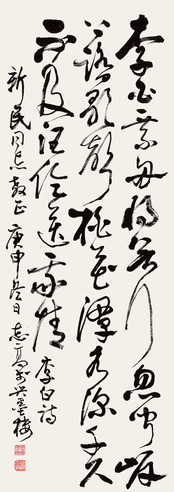 李白乘舟将欲行忽闻岸
上踏歌声桃花潭水深千尺
不及汪伦送我情 李白诗
新民同志教正 庚申冬日 志高书于吴墨楼